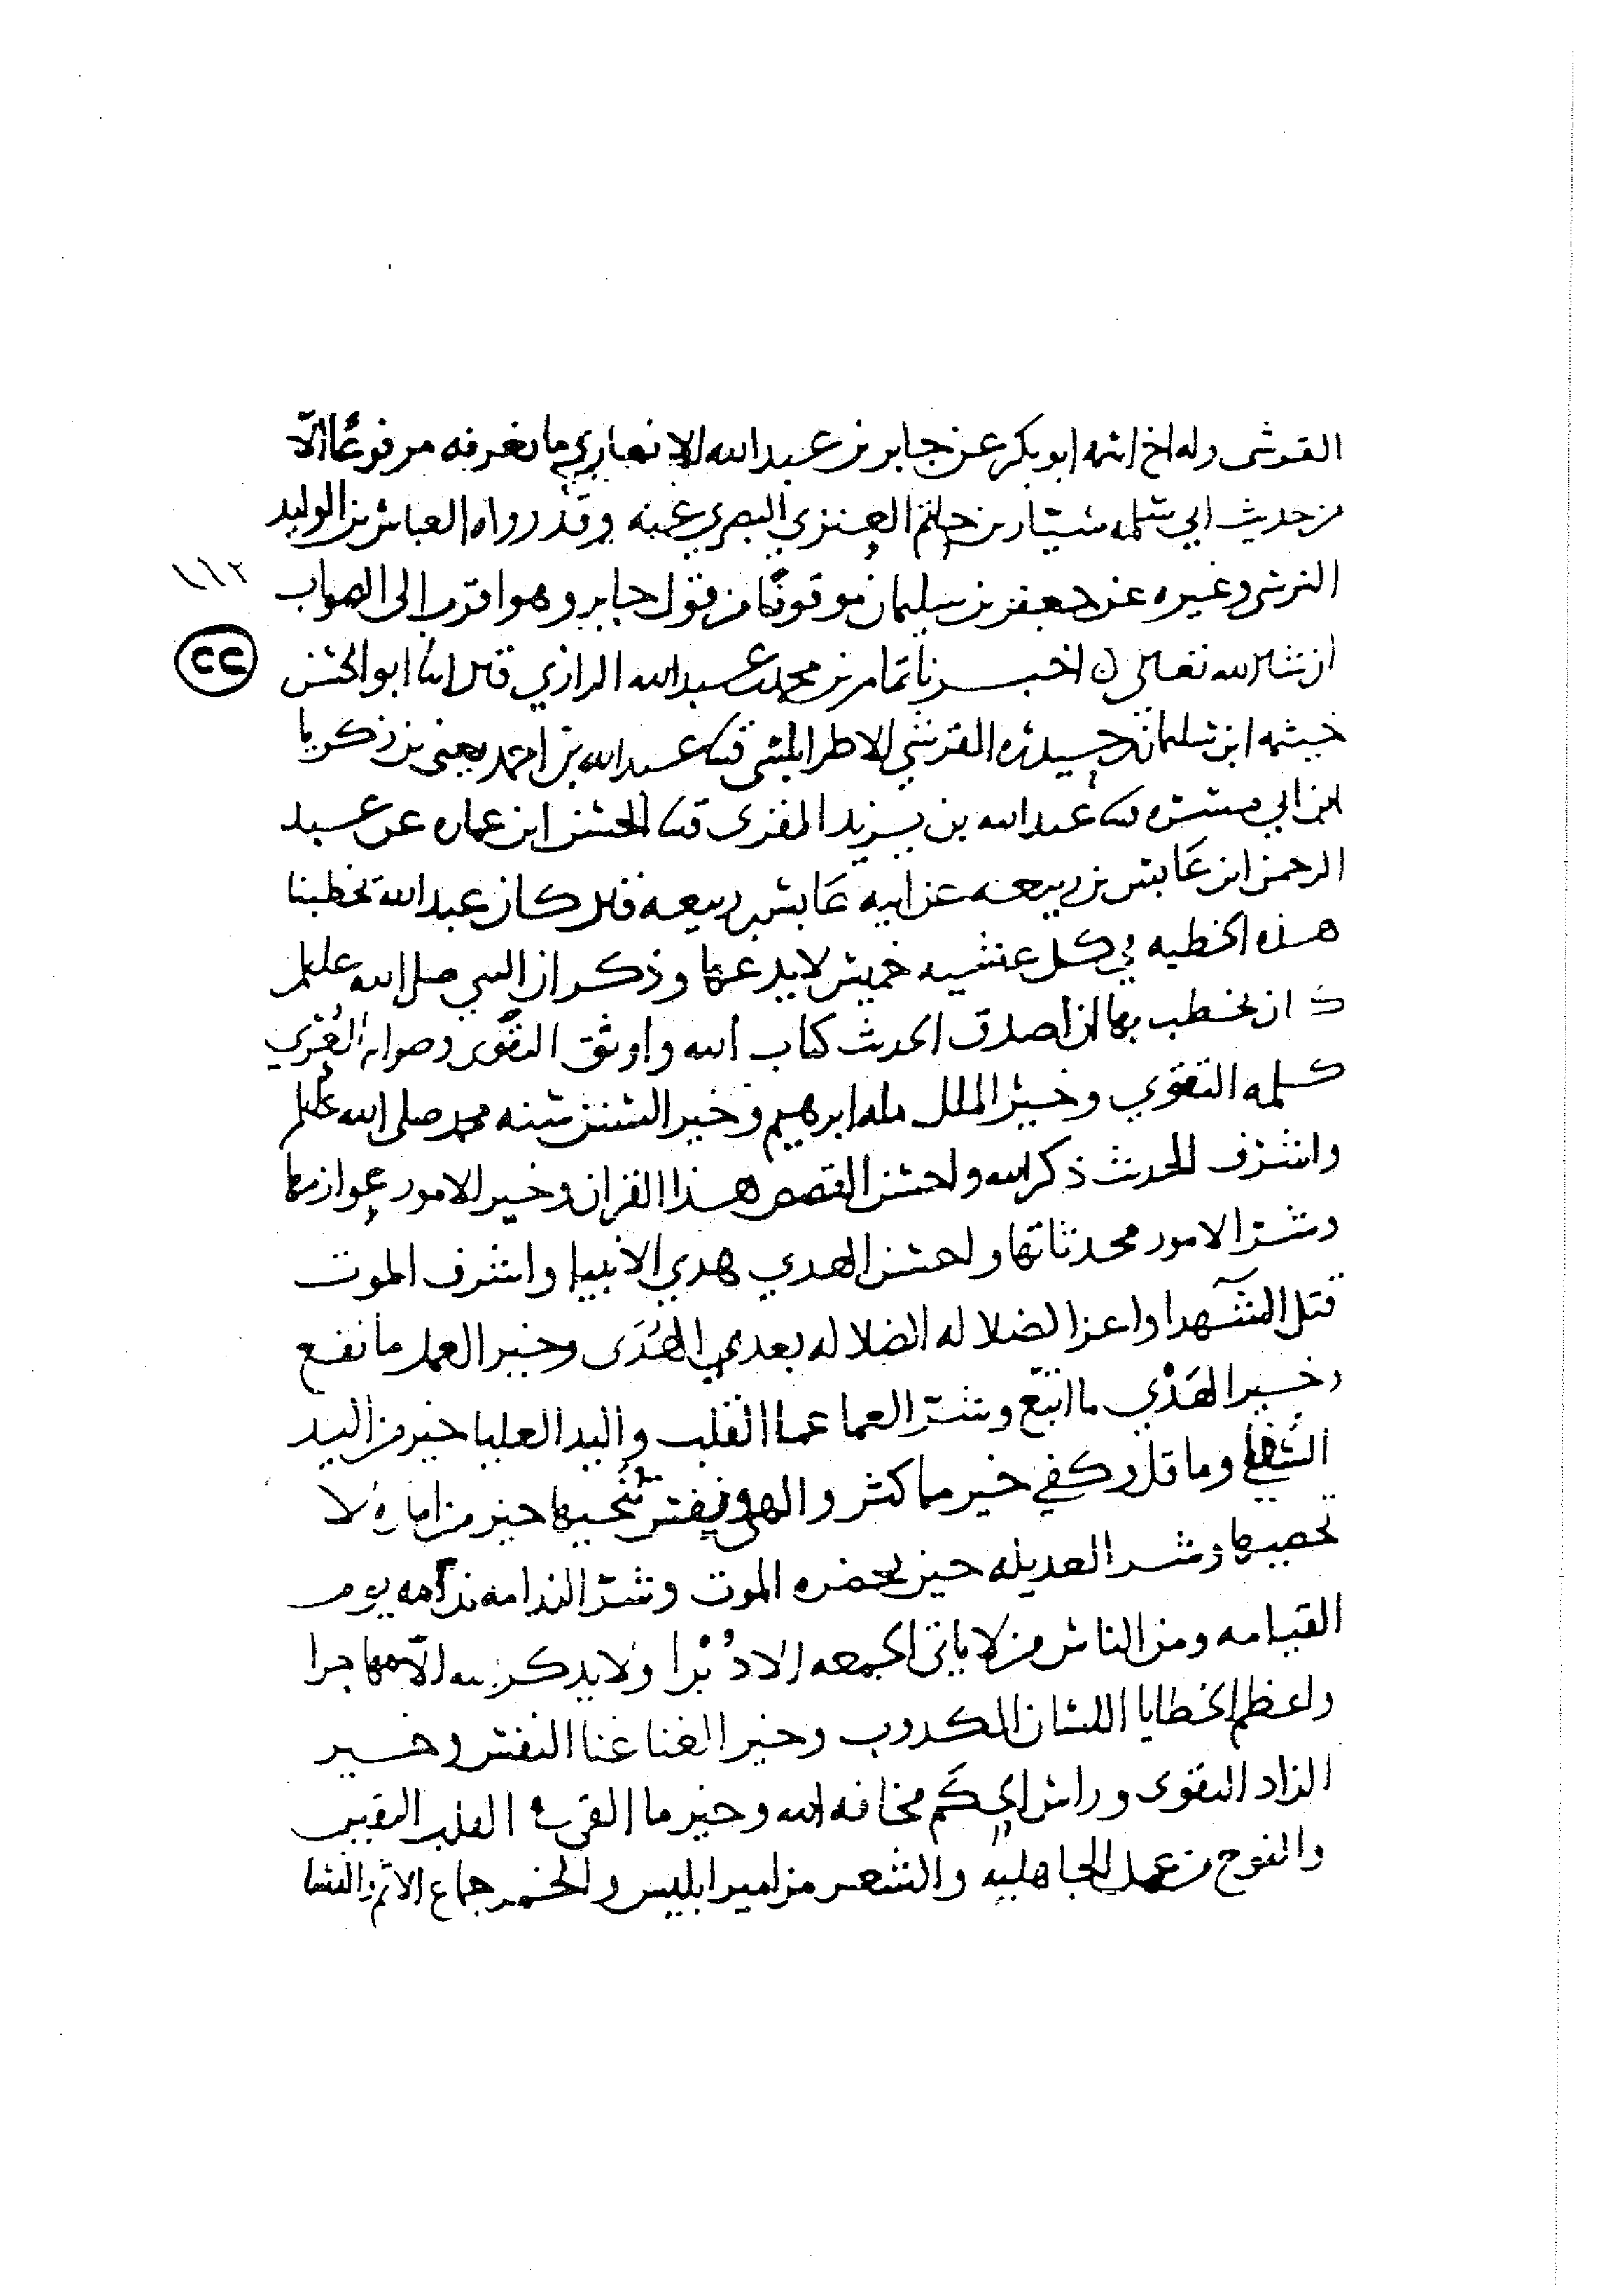 القرشى وله اخ اسمه ابو بكر عن جابر بن عبد الله الانصاري ما نعرفه مرفوعًا الّا
من حديث ابي سلمه سيّار بن حاتم العنزي البصري عنه وقد رواه العباس بن الوليد
النرسى وغيره عن جعفر بن سليمان موقوفًا من قول جابر وهو اقرب الى الصواب
١١٢
٢٢
ان شا الله تعالى اخبرنا تمام بن محمد بن عبد الله الرازي قال انا ابو الحسن
خيثمه ابن سليمان بن حيدره القرشي الاطرابلسى ثنا عبد الله بن احمد يعنى بن زكريا
ابن ابي مسره ثنا عبد الله بن يزيد المقرى ثنا الحسن ابن عماره عن عبد
الرحمن ابن عَابس بن ربيعه عن ابيه عَابس بن ربيعه قال كان عبد الله يخطبنا
هذه الخطبه في كل عشيه خميس لا يدعها وذكر ان النبي صلى الله عليه
كان يخطب بها ان اصدق الحديث كتاب الله واوثق التقوى وصوابه العُرَي
كلمه التقوي وخير الملل مله ابرهيم وخير السنن سنه محمد صلى الله عليه
واشرف الحديث ذكر الله واحسن القصص هذا القران وخير الامور عوازمها
وشرّ الامور محدثاتها واحسن الهدي هدي الانبيا واشرف الموت
قتل الشهدا واعز الضلاله الضلاله بعد الهُدَى وخير العمل ما نفع
وخير الهَدْي ما اتبّع وشرّ العما عما القلب واليد العليا خير من اليد
السُفلى وما قل وكفي خير مما كثر والهى ونفس تنُجيها خير من اماره لا
تحصيها وشر العديله حين يحضره الموت وشرّ الندامه ندامه يوم
القيامه ومن الناس من لا ياتى الجمعه الا دُبْرا ولا يذكر الله الّا مهاجرا
واعظم الخطايا اللسان الكدوب وخير الغنا غنا النفس وخير
الزاد التقوى وراس الحِكَم مخافه الله وخير ما القى في القلب اليقين
والنوح من عمل الجاهليه والشعر مزامير ابليس والخمر جماع الاثم والنسا